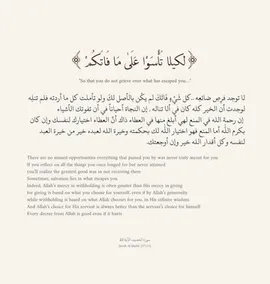 ﴿ لِكَيْلَا تَأْسَوْا عَلَىٰ مَا فَاتَكُمْ ﴾
"So that you do not grieve over what has escaped you..."
لا توجد فرص ضائعة.. كل شيءٍ فاتك لم يكن بالأصل لك ولو تأملت كل ما أردته فلم تنله
لوجدت أن الخير كله كان في ألا تناله. إن النجاة أحياناً في أن تفوتك الأشياء
إن رحمة الله في المنع لهي أبلغ منها في العطاء ذاك أنّ العطاء اختيارك لنفسك وإن كان
بكرم اللّٰه أما المنع فهو اختيار اللّٰه لك بحكمته وخيرة اللّٰه لعبده خير من خيرة العبد
لنفسه وكل أقدار اللّٰه خير وإن أوجعتك.
There are no missed opportunities everything that passed you by was never truly meant for you
If you reflect on all the things you once longed for but never attained
you'll realize the greatest good was in not receiving them
Sometimes, salvation lies in what escapes you
Indeed, Allah's mercy in withholding is often greater than His mercy in giving
for giving is based on what you choose for yourself, even if by Allah's generosity
while withholding is based on what Allah chooses for you, in His infinite wisdom
And Allah's choice for His servant is always better than the servant's choice for himself
Every decree from Allah is good even if it hurts
سورة الحديد